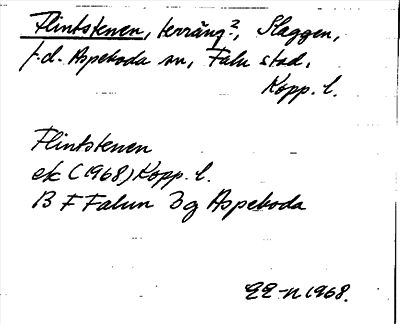 Flintstenen, terräng?, Slaggen,
f.d. Aspeboda sn, Falu stad,
Kopp. l.
Flintstenen
ek (1968) Kopp. l.
13 F Falun 3g Aspeboda
1968.